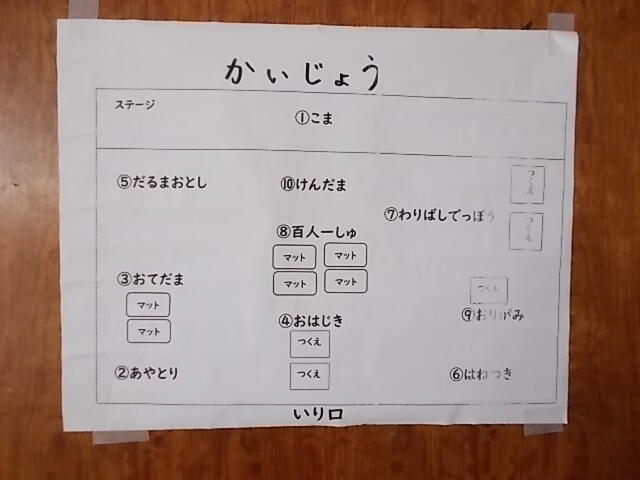 かいじょう
ステージ
①こま
⑤だるまおとし
⑩けんだま
つくえ
⑦わりばしでっぽう
つくえ
⑧百人一しゅ
マット
マット
マット
マット
③おてだま
マット
マット
つくえ
⑨おりがみ
④おはじき
つくえ
つくえ
②あやとり
⑥はねつき
いり口